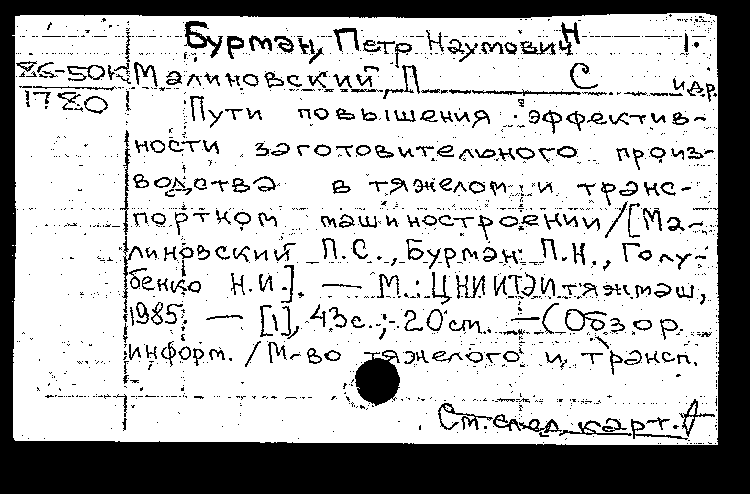 Бурман, Петр Наумович Н 1.
86-50к Малиновский, П С и др.
1780 Пути повышения эффектив-
ности заготовительного произ-
водства в тяжелом и транс-
портном машиностроении/[Ма-
линовский П.С., Бурман П.Н., Голу-
бенко Н.И.]. — М.: ЦНИИТЭИтяжмаш,
1985. — [1], 43с.; 20см. — (Обзор.
информ. /М-во тяжелого и трансп.
См. след. карт.